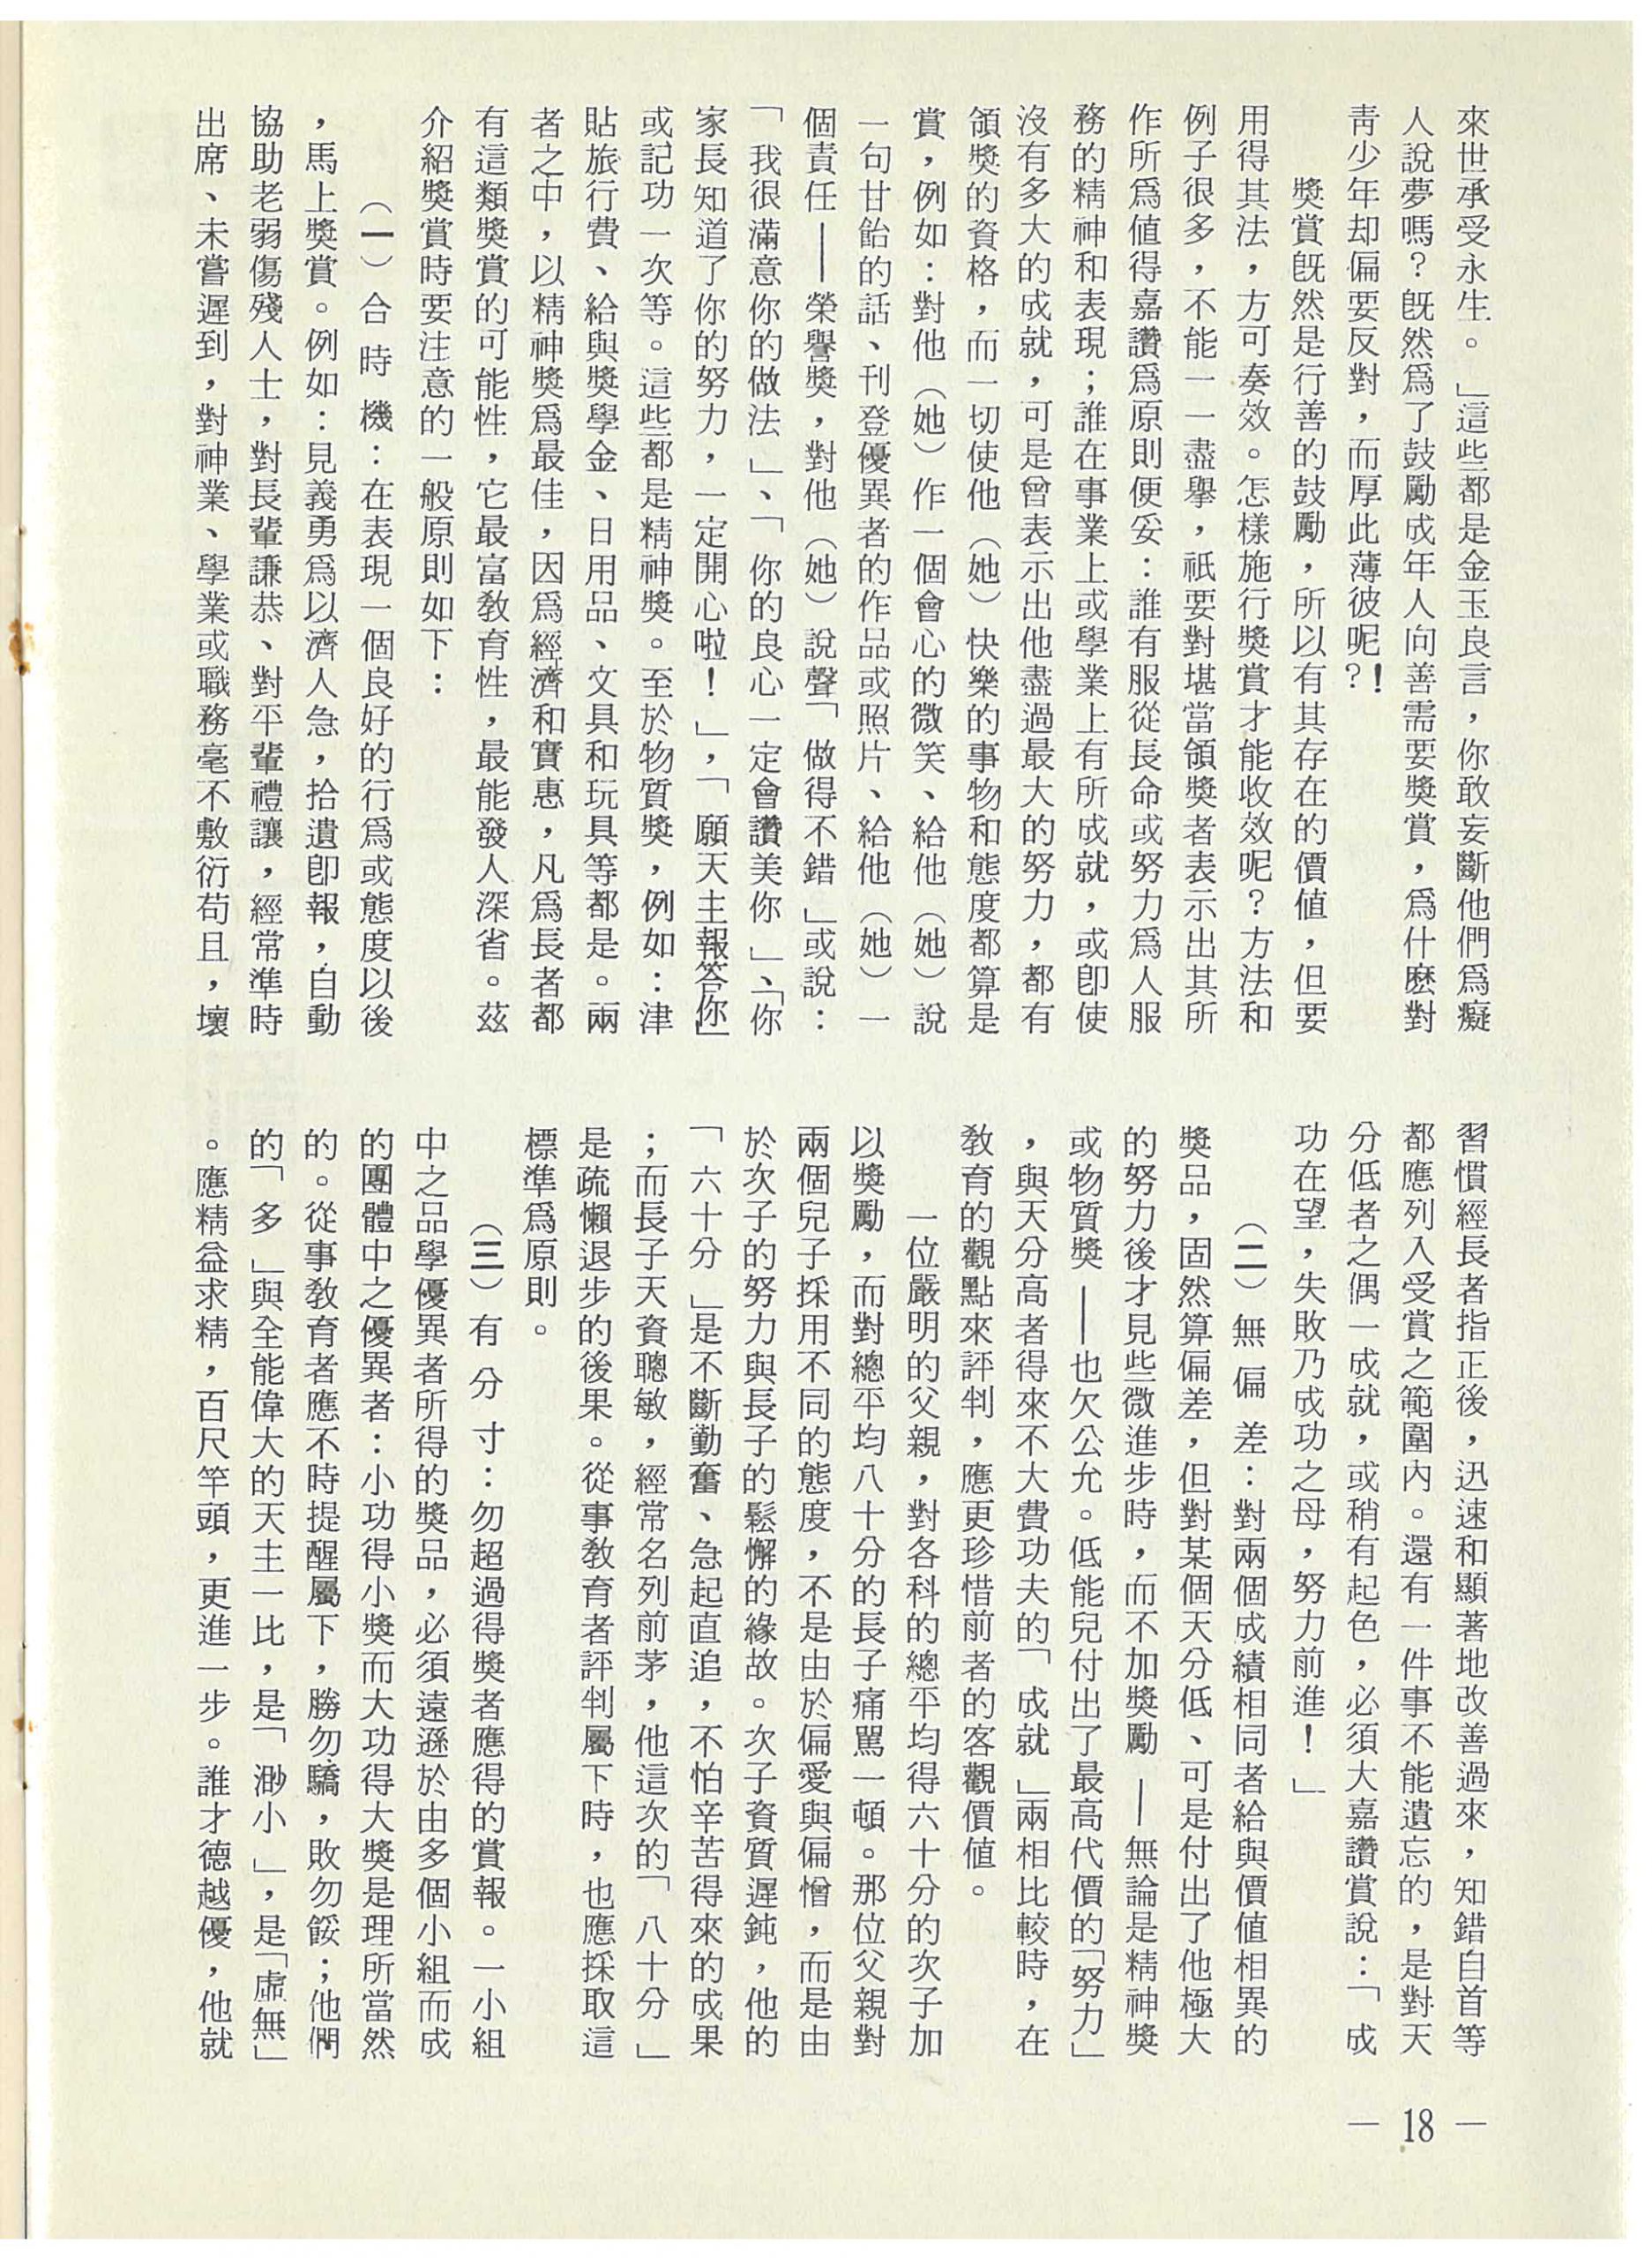 來世承受永生。」這些都是金玉良言，你敢妄斷他們爲癡
人說夢嗎？旣然爲了鼓勵成年人向善需要獎賞，爲什麽對
靑少年却偏要反對，而厚此薄彼呢？！
獎賞旣然是行善的鼓勵，所以有其存在的價値，但要
用得其法，方可奏效。怎樣施行獎賞才能收效呢？方法和
例子很多，不能一一盡舉，祇要對堪當領獎者表示出其所
作所爲値得嘉讚爲原則便妥：誰有服從長命或努力爲人服
務的精神和表現；誰在事業上或學業上有所成就，或卽使
沒有多大的成就，可是曾表示出他盡過最大的努力，都有
領獎的資格，而一切使他（她）快樂的事物和態度都算是
賞，例如：對他（她）作一個會心的微笑、給他（她）說
一句甘飴的話、刊登優異者的作品或照片、給他（她）一
個責任——榮譽獎，對他（她）說聲「做得不錯」或說：
「我很滿意你的做法」、「你的良心一定會讚美你」、「你
家長知道了你的努力，一定開心啦！」，「願天主報答你」
或記功一次等。這些都是精神獎。至於物質獎，例如：津
貼旅行費、給與獎學金、日用品、文具和玩具等都是。兩
者之中，以精神獎爲最佳，因爲經濟和實惠，凡爲長者都
有這類獎賞的可能性，它最富敎育性，最能發人深省。茲
介紹獎賞時要注意的一般原則如下：
（一）合時機：在表現一個良好的行爲或態度以後
，馬上獎賞。例如：見義勇爲以濟人急，拾遺卽報，自動
協助老弱傷殘人士，對長輩謙恭、對平輩禮讓，經常準時
出席、未嘗遲到，對神業、學業或職務毫不敷衍苟且，壞
習慣經長者指正後，迅速和顯著地改善過來，知錯自首等
都應列入受賞之範圍內。還有一件事不能遺忘的，是對天
分低者之偶一成就，或稍有起色，必須大嘉讚賞說：「成
功在望，失敗乃成功之母，努力前進！」
（二）無偏差：對兩個成績相同者給與價值相異的
獎品，固然算偏差，但對某個天分低、可是付出了他極大
的努力後才見些微進步時，而不加獎勵——無論是精神獎
或物質獎——也欠公允。低能兒付出了最高代價的「努力」
，與天分高者得來不大費功夫的「成就」兩相比較時，在
敎育的觀點來評判，應更珍惜前者的客觀價値。
一位嚴明的父親，對各科的總平均得六十分的次子加
以獎勵，而對總平均八十分的長子痛駡一頓。那位父親對
兩個兒子採用不同的態度，不是由於偏愛與偏憎，而是由
於次子的努力與長子的鬆懈的緣故。次子資質遲鈍，他的
「六十分」是不斷勤奮、急起直追，不怕辛苦得來的成果
；而長子天資聰敏，經常名列前茅，他這次的「八十分」
是疏懶退步的後果。從事敎育者評判屬下時，也應採取這
標準爲原則。
（三）有分寸：勿超過得獎者應得的賞報。一小組
中之品學優異者所得的獎品，必須遠遜於由多個小組而成
的團體中之優異者：小功得小獎而大功得大獎是理所當然
的。從事敎育者應不時提醒屬下，勝勿驕，敗勿餒；他們
的「多」與全能偉大的天主一比，是「渺小」，是「虛無」
。應精益求精，百尺竿頭，更進一步。誰才德越優，他就
— 18 —